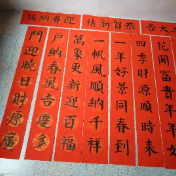 吉大
恭賀新禧
迎春納福
花開富貴年年
四季財源順時來
一年好景同春到
一帆風順納千祥
萬象更新迎百福
戶納春風吉慶多
門迎曉日財源廣